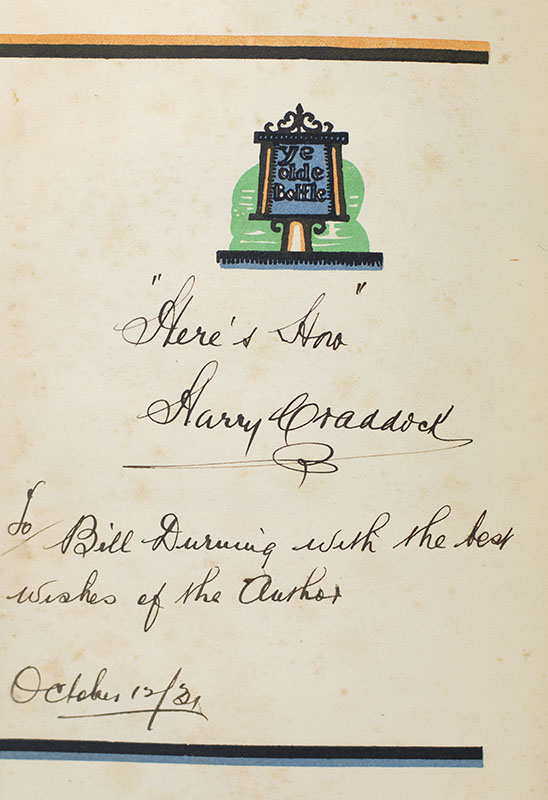 ye
olde
Bottle
"Here's How"
Harry Craddock
To Bill Durning with the best
wishes of the Author
October 12/31